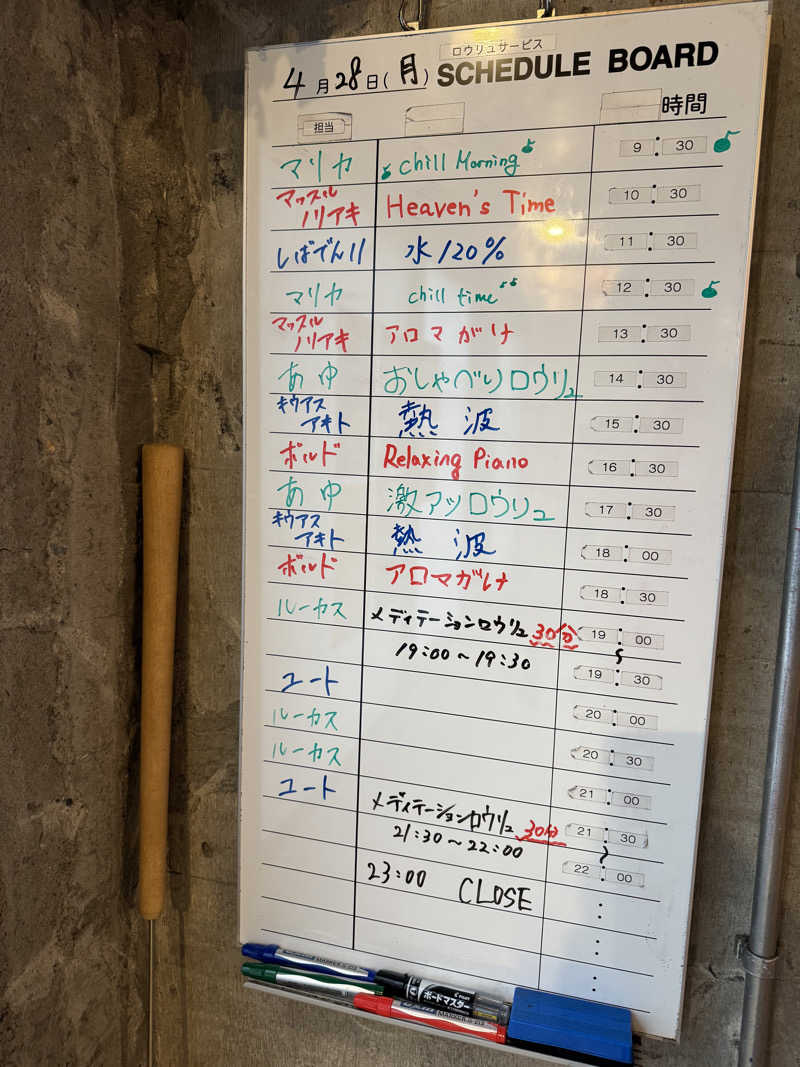 ロウリュサービス
4月28日(月) SCHEDULE BOARD
担当 時間
マリカ chill Morning 9:30
マッスルノリアキ Heaven's Time 10:30
しばでん11 水120% 11:30
マリカ chill time 12:30
マッスルノリアキ アロマがけ 13:30
あゆ おしゃべりロウリュ 14:30
キウアスアキト 熱波 15:30
ボルド Relaxing Piano 16:30
あゆ 激アツロウリュ 17:30
キウアスアキト 熱波 18:00
ボルド アロマがけ 18:30
ルーカス メディテーションロウリュ 30分 19:00
19:00〜19:30 〜
ユート 19:30
ルーカス 20:00
ルーカス 20:30
ユート 21:00
メディテーションロウリュ 30分 21:30
21:30〜22:00 〜
22:00
23:00 CLOSE
ボードマスター